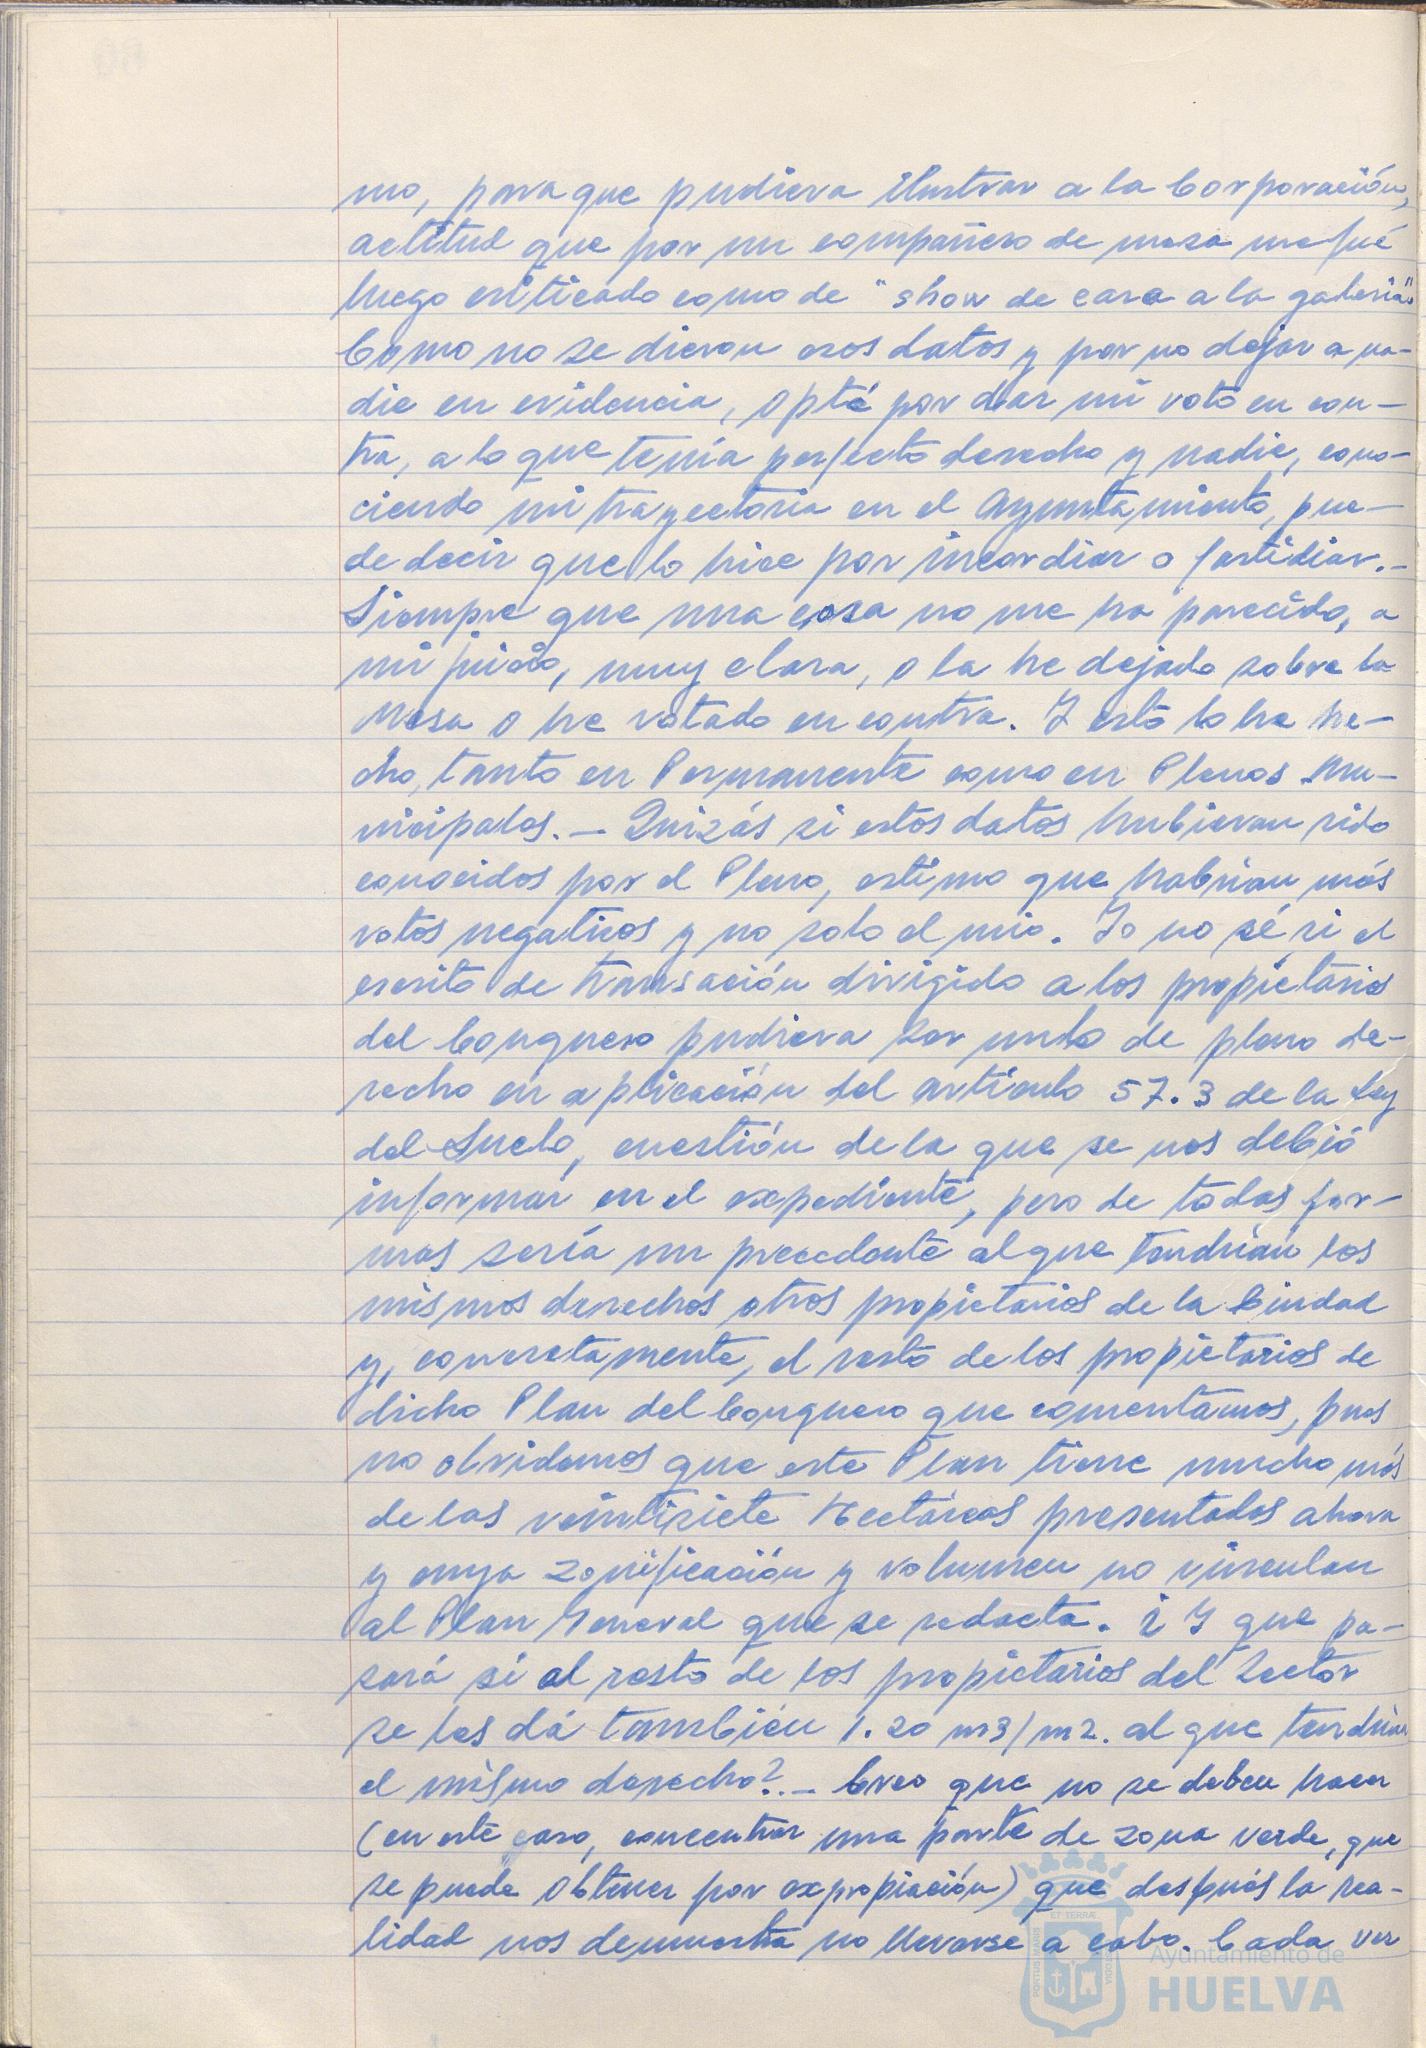 mo, para que pudiera ilustrar a la Corporación,
actitud que por un compañero de mesa me fué
luego criticado como de "show de cara a la galeria".
Como no se dieron esos datos y por no dejar a na-
die en evidencia, opté por dar mi voto en con-
tra, a lo que tenía perfecto derecho y nadie, cono-
ciendo mi trayectoria en el Ayuntamiento, pue-
de decir que lo hice por incordiar o fastidiar.-
Siempre que una cosa no me ha parecido, a
mi juicio, muy clara, o la he dejado sobre la
Mesa o he votado en contra. Y esto lo he he-
cho, tanto en Permanente como en Plenos Mu-
nicipales.- Quizás si estos datos hubieran sido
conocidos por el Pleno, estimo que habrian más
votos negativos y no solo el mio. Yo no sé si el
escrito de transación dirigido a los propietarios
del Conquero pudiera ser nulo de pleno de-
recho en aplicación del artículo 57.3 de la Ley
del Suelo, cuestión de la que se nos debió
informar en el expediente, pero de todas for-
mas sería un precedente al que tendrían los
mismos derechos otros propietarios de la Ciudad
y, concretamente, el resto de los propietarios de
dicho Plan del Conquero que comentamos, pues
no olvidemos que este Plan tiene mucho más
de las veintisiete Hectáreas presentadas ahora
y cuya zonificación y volumen no vinculan
al Plan General que se redacta. ¿Y que pa-
sará si al resto de los propietarios del Sector
se les dá también 1.20 m3/m2. al que tendrían
el mismo derecho?.- Creo que no se deben hacer
(en este caso, concentrar una parte de zona verde, que
se puede obtener por expropiación) que después la rea-
lidad nos demuestra no llevarse a cabo. Cada vez
PORTUS MARIS
ET TERRÆ
CUSTODIA
Ayuntamiento de
HUELVA